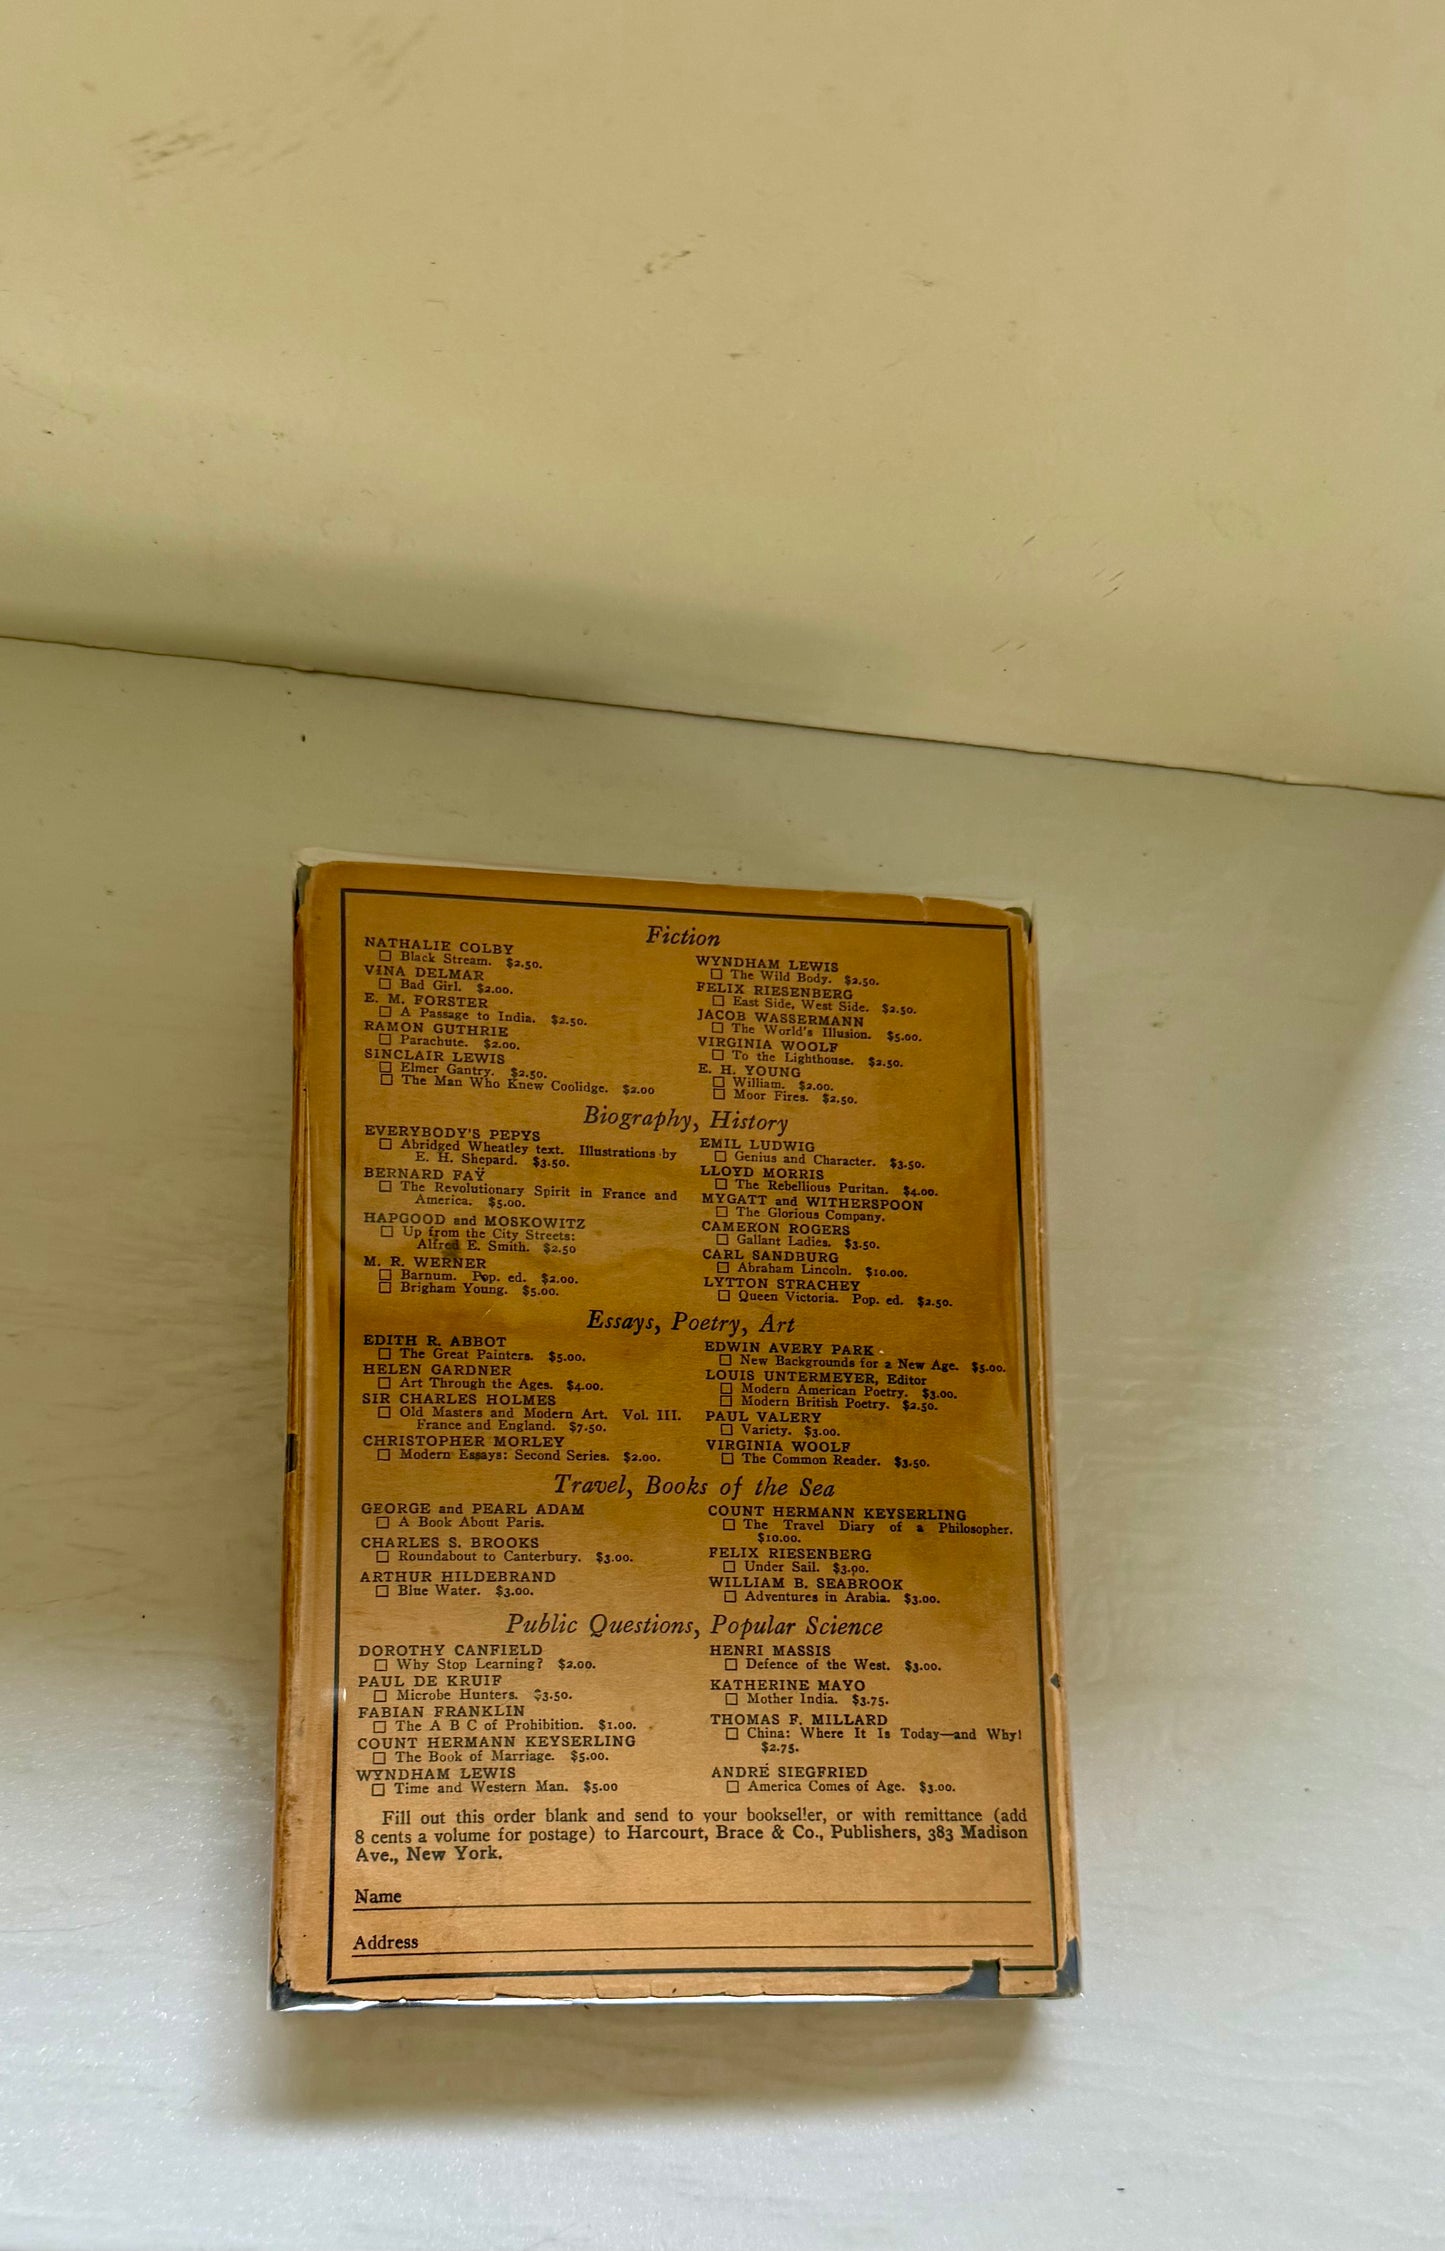 Fiction
NATHALIE COLBY
☐ Black Stream. $2.50.
VINA DELMAR
☐ Bad Girl. $2.00.
E. M. FORSTER
☐ A Passage to India. $2.50.
RAMON GUTHRIE
☐ Parachute. $2.00.
SINCLAIR LEWIS
☐ Elmer Gantry. $2.50.
☐ The Man Who Knew Coolidge. $2.00
WYNDHAM LEWIS
☐ The Wild Body. $2.50.
FELIX RIESENBERG
☐ East Side, West Side. $2.50.
JACOB WASSERMANN
☐ The World's Illusion. $5.00.
VIRGINIA WOOLF
☐ To the Lighthouse. $2.50.
E. H. YOUNG
☐ William. $2.00.
☐ Moor Fires. $2.50.
Biography, History
EVERYBODY'S PEPYS
☐ Abridged Wheatley text. Illustrations by
E. H. Shepard. $3.50.
BERNARD FAŸ
☐ The Revolutionary Spirit in France and
America. $5.00.
HAPGOOD and MOSKOWITZ
☐ Up from the City Streets:
Alfred E. Smith. $2.50
M. R. WERNER
☐ Barnum. Pop. ed. $2.00.
☐ Brigham Young. $5.00.
EMIL LUDWIG
☐ Genius and Character. $3.50.
LLOYD MORRIS
☐ The Rebellious Puritan. $4.00.
MYGATT and WITHERSPOON
☐ The Glorious Company.
CAMERON ROGERS
☐ Gallant Ladies. $3.50.
CARL SANDBURG
☐ Abraham Lincoln. $10.00.
LYTTON STRACHEY
☐ Queen Victoria. Pop. ed. $2.50.
Essays, Poetry, Art
EDITH R. ABBOT
☐ The Great Painters. $5.00.
HELEN GARDNER
☐ Art Through the Ages. $4.00.
SIR CHARLES HOLMES
☐ Old Masters and Modern Art. Vol. III.
France and England. $7.50.
CHRISTOPHER MORLEY
☐ Modern Essays: Second Series. $2.00.
EDWIN AVERY PARK
☐ New Backgrounds for a New Age. $5.00.
LOUIS UNTERMEYER, Editor
☐ Modern American Poetry. $3.00.
☐ Modern British Poetry. $2.50.
PAUL VALERY
☐ Variety. $3.00.
VIRGINIA WOOLF
☐ The Common Reader. $3.50.
Travel, Books of the Sea
GEORGE and PEARL ADAM
☐ A Book About Paris.
CHARLES S. BROOKS
☐ Roundabout to Canterbury. $3.00.
ARTHUR HILDEBRAND
☐ Blue Water. $3.00.
COUNT HERMANN KEYSERLING
☐ The Travel Diary of a Philosopher.
$10.00.
FELIX RIESENBERG
☐ Under Sail. $3.00.
WILLIAM B. SEABROOK
☐ Adventures in Arabia. $3.00.
Public Questions, Popular Science
DOROTHY CANFIELD
☐ Why Stop Learning? $2.00.
PAUL DE KRUIF
☐ Microbe Hunters. $3.50.
FABIAN FRANKLIN
☐ The A B C of Prohibition. $1.00.
COUNT HERMANN KEYSERLING
☐ The Book of Marriage. $5.00.
WYNDHAM LEWIS
☐ Time and Western Man. $5.00
HENRI MASSIS
☐ Defence of the West. $3.00.
KATHERINE MAYO
☐ Mother India. $3.75.
THOMAS F. MILLARD
☐ China: Where It Is Today—and Why!
$2.75.
ANDRÉ SIEGFRIED
☐ America Comes of Age. $3.00.
Fill out this order blank and send to your bookseller, or with remittance (add
8 cents a volume for postage) to Harcourt, Brace & Co., Publishers, 383 Madison
Ave., New York.
Name
Address